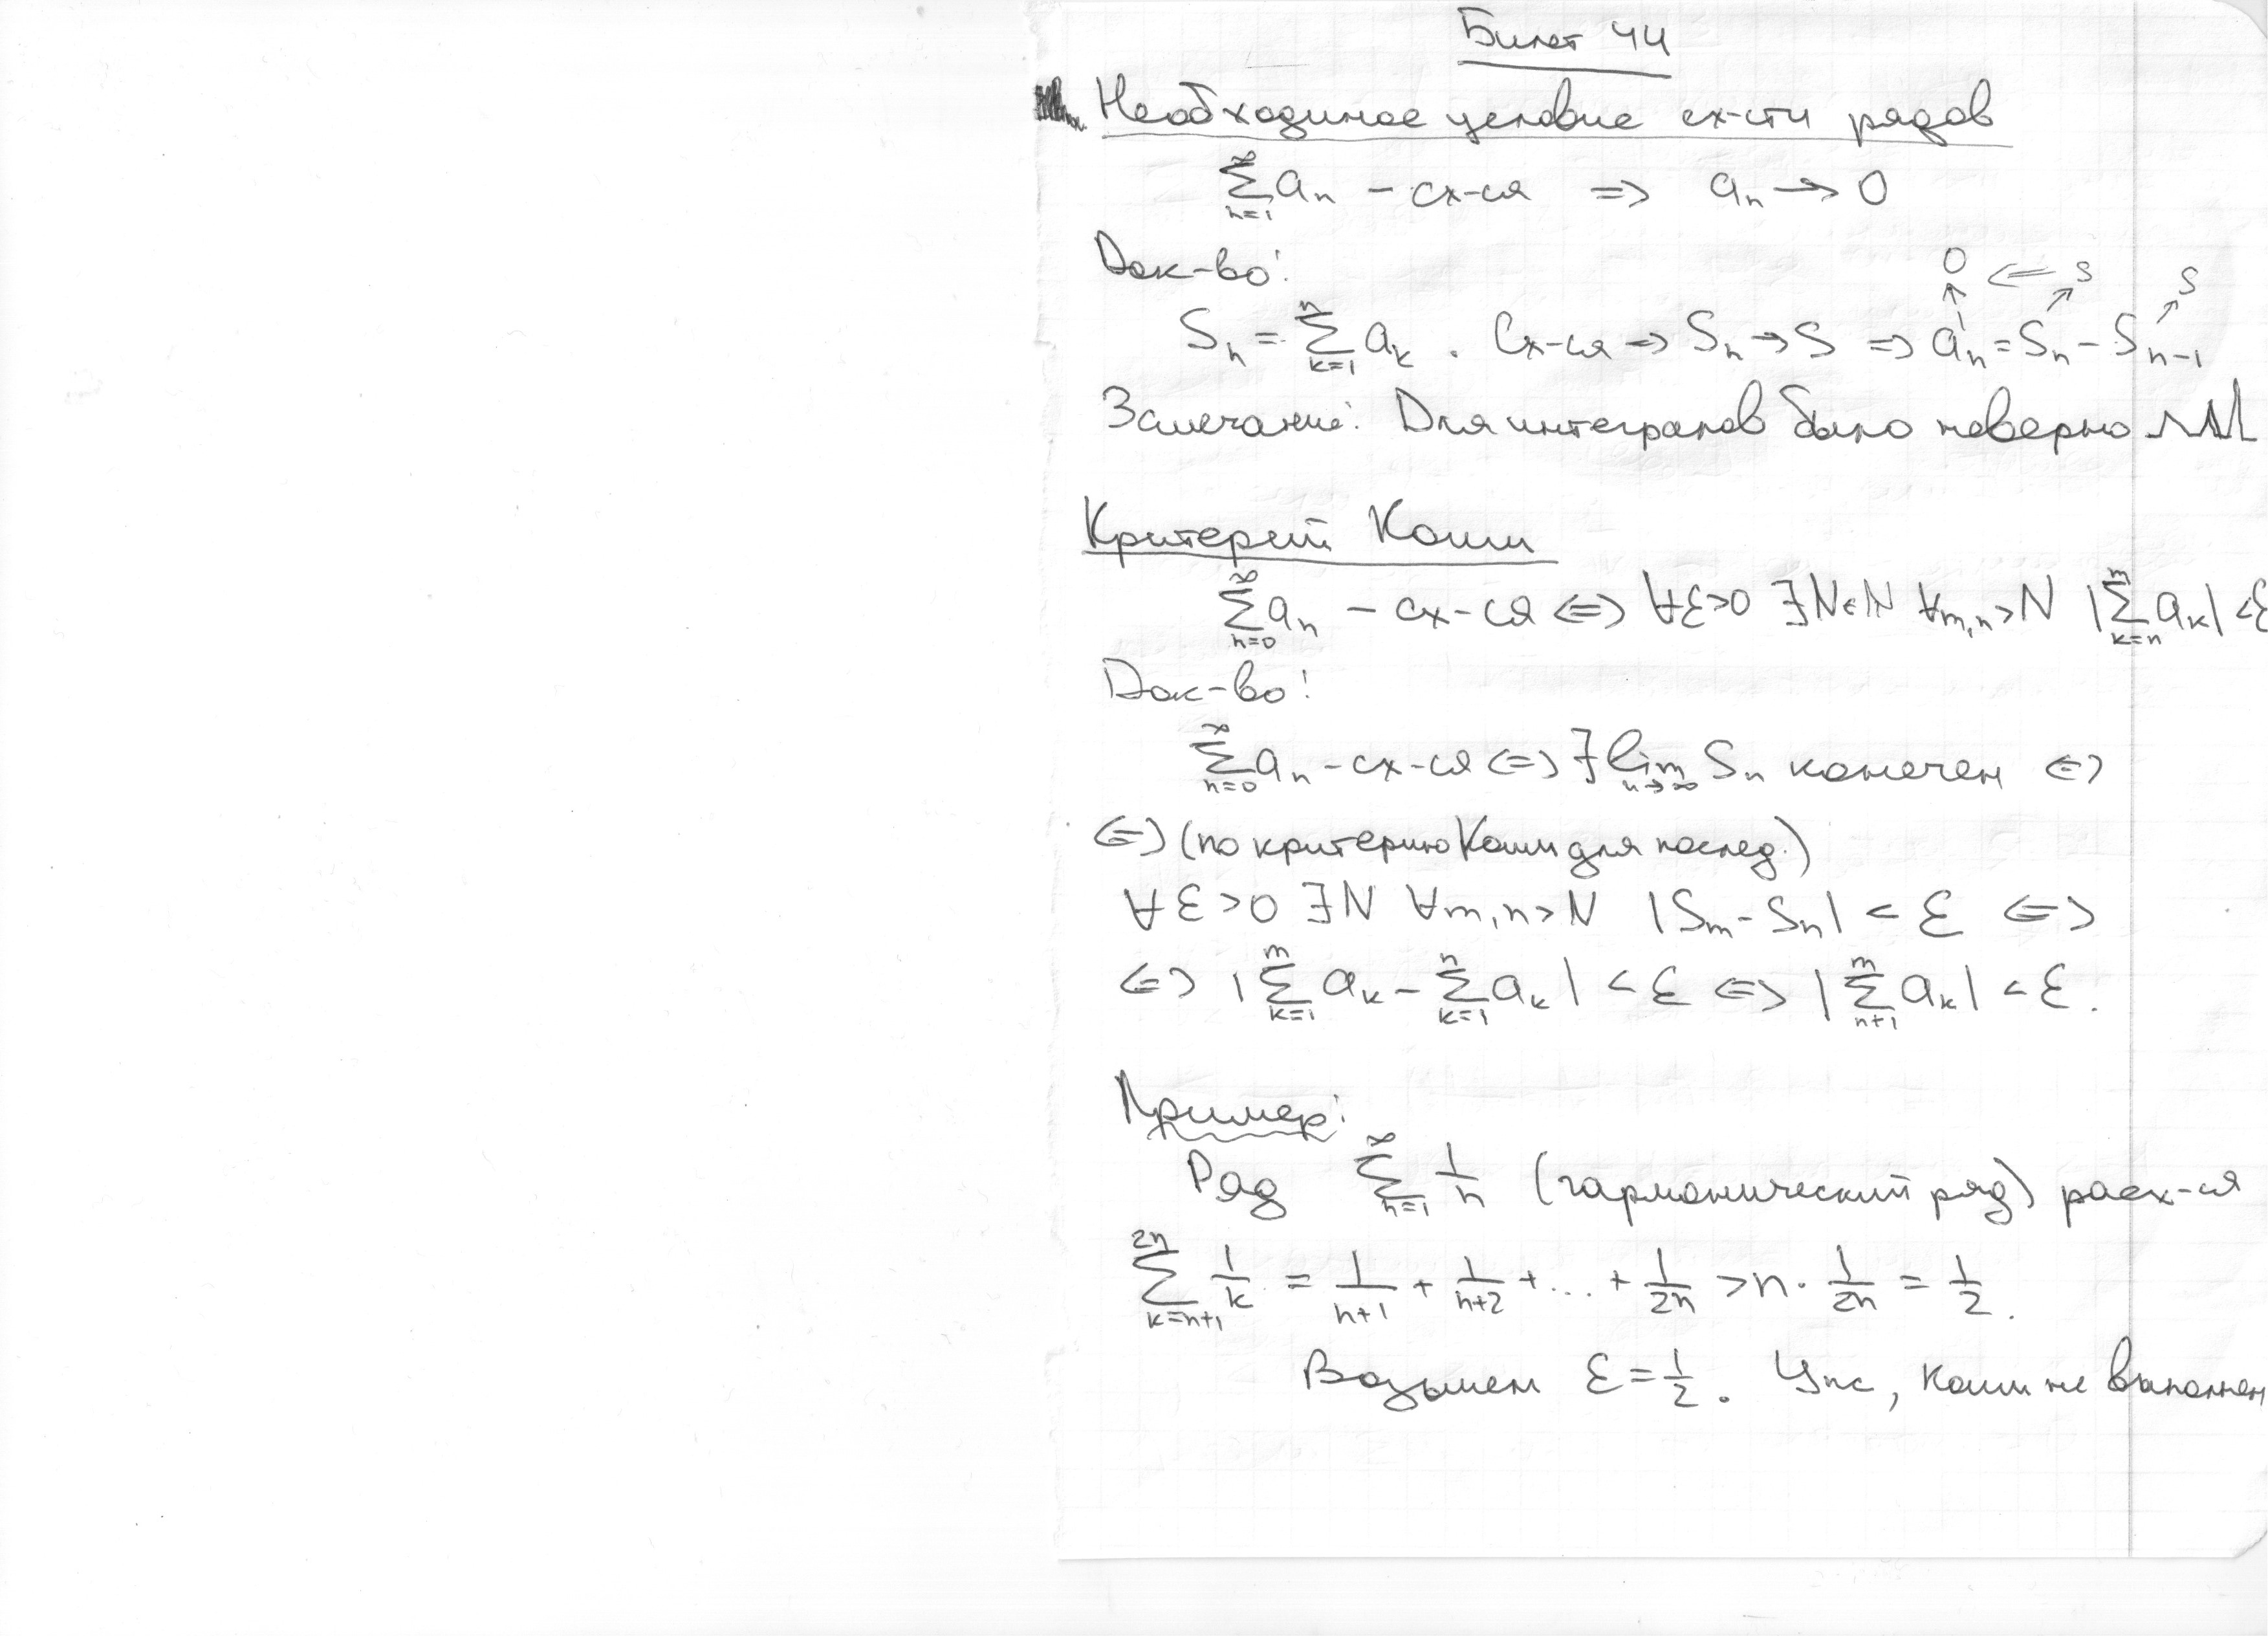 Билет 44
Необходимое условие сх-сти рядов
∑_{n=1}^{∞} a_n - сх-ся => a_n → 0
Док-во:
0 <= S S
S_n = ∑_{k=1}^{n} a_k . Сх-ся => S_n → S => a_n = S_n - S_{n-1}
Замечание: Для интегралов было неверно
Критерий Коши
∑_{n=0}^{∞} a_n - сх-ся <=> ∀ε>0 ∃N∈ℕ ∀m,n>N |∑_{k=n}^{m} a_k| < ε
Док-во:
∑_{n=0}^{∞} a_n - сх-ся <=> ∃ lim_{n→∞} S_n конечен <=>
<=> (по критерию Коши для послед.)
∀ε>0 ∃N ∀m,n>N |S_m - S_n| < ε <=>
<=> |∑_{k=1}^{m} a_k - ∑_{k=1}^{n} a_k| < ε <=> |∑_{n+1}^{m} a_k| < ε.
Пример:
Ряд ∑_{n=1}^{∞} 1/n (гармонический ряд) расх-ся
∑_{k=n+1}^{2n} 1/k = 1/(n+1) + 1/(n+2) + ... + 1/(2n) > n · 1/(2n) = 1/2.
Возьмем ε = 1/2. Упс, Коши не выполнен